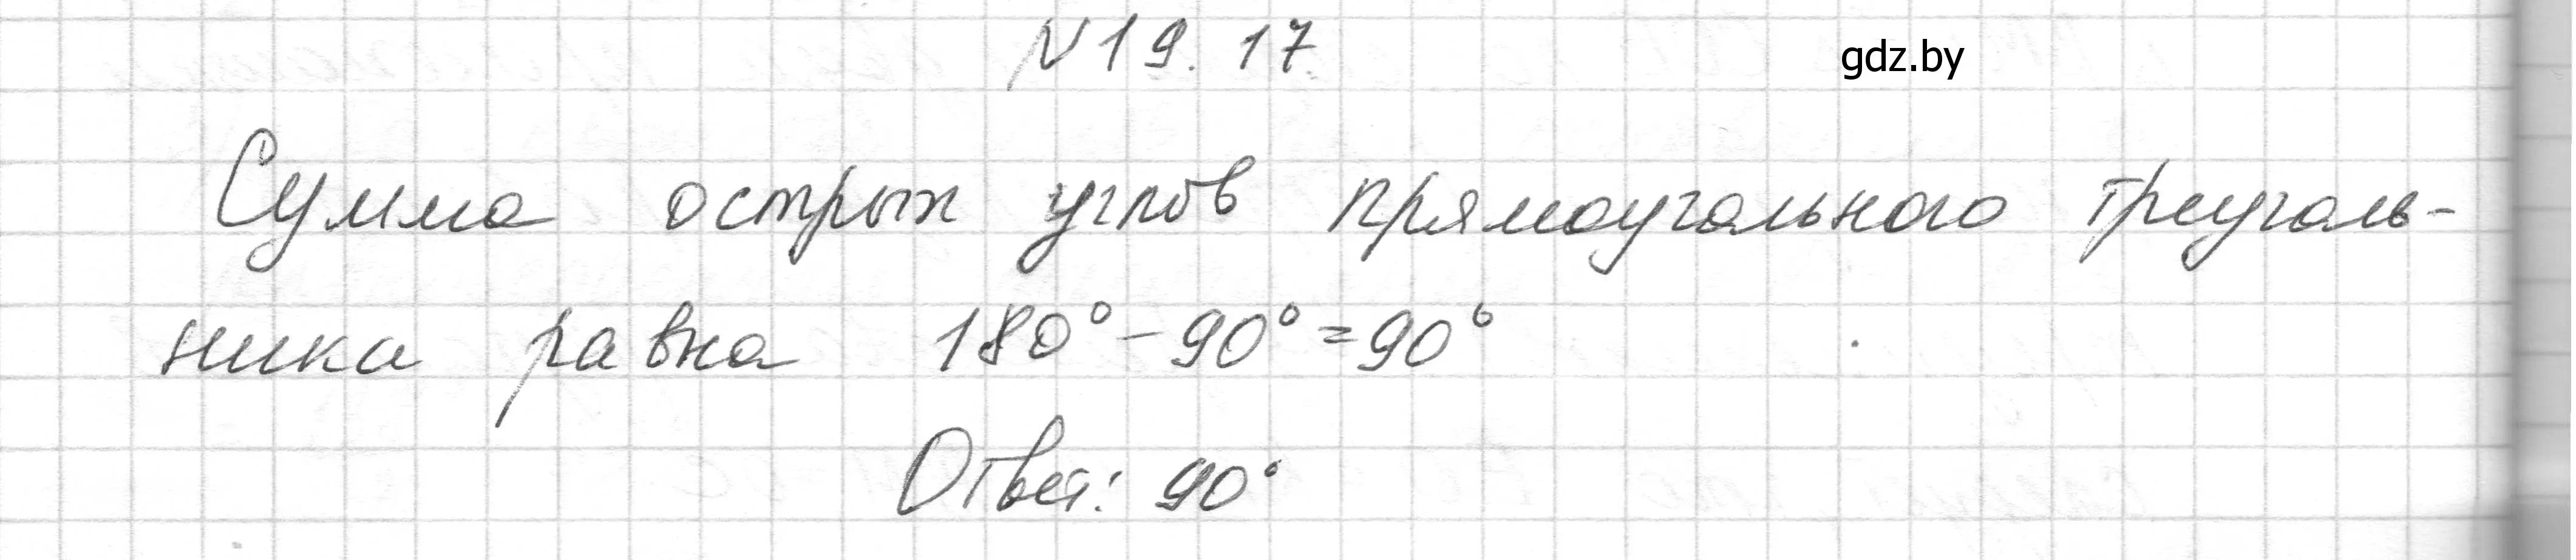 №19.17.
gdz.by
Сумма острых углов прямоугольного треуголь-
ника равна 180° - 90° = 90°
Ответ: 90°